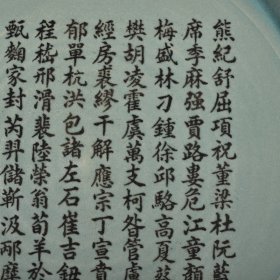 熊紀舒屈項祝董梁杜阮藍
席季麻强賈路婁危江童顏
梅盛林刁鍾徐邱駱高夏蔡
樊胡凌霍虞萬支柯昝管盧
經房裘繆干解應宗丁宣賁
郁單杭洪包諸左石崔吉鈕
程嵇邢滑裴陸榮翁荀羊於
甄麴家封芮羿儲靳汲邴糜